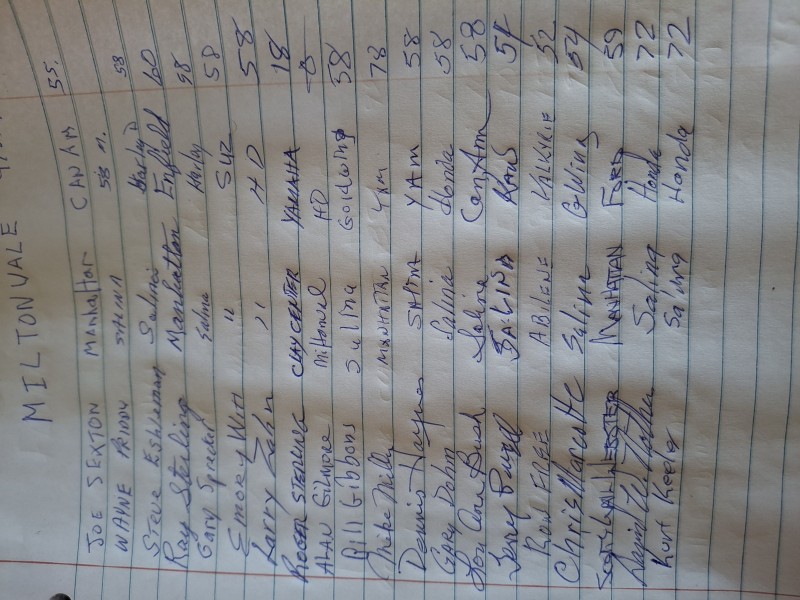 MILTONVALE
JOE SEXTON Manhattan CAN AM 55.
WAYNE PRIDDY SALINA 58 M. 58
Steve Eshleman Salina Harley D 60
Ray Sterling Manhattan Enfield 58
Gary Salina Harley 58
Emory Wirt " SUZ 58
Larry Zahn " HD 18
ROGER STERLING CLAY CENTER YAMAHA
ALAN Gilmore Miltonvale HD
Bill Gibbons Sulina Goldwing 58
Mike MANHATTAN Yam 78
Dennis Haynes SALINA YAM 58
GARY Dehn Salina Honda 58
Lou Ann Bush Salina Can Am 58
Jerry SALINA Kaw
Ron FREE ABILENE VALKYRIE 52
Chris Salina G Wing 54
WEBSTER MANHATTAN FORD 59
Daniel W. Saling Honda 72
Kurt Keeler Saling Honda 72